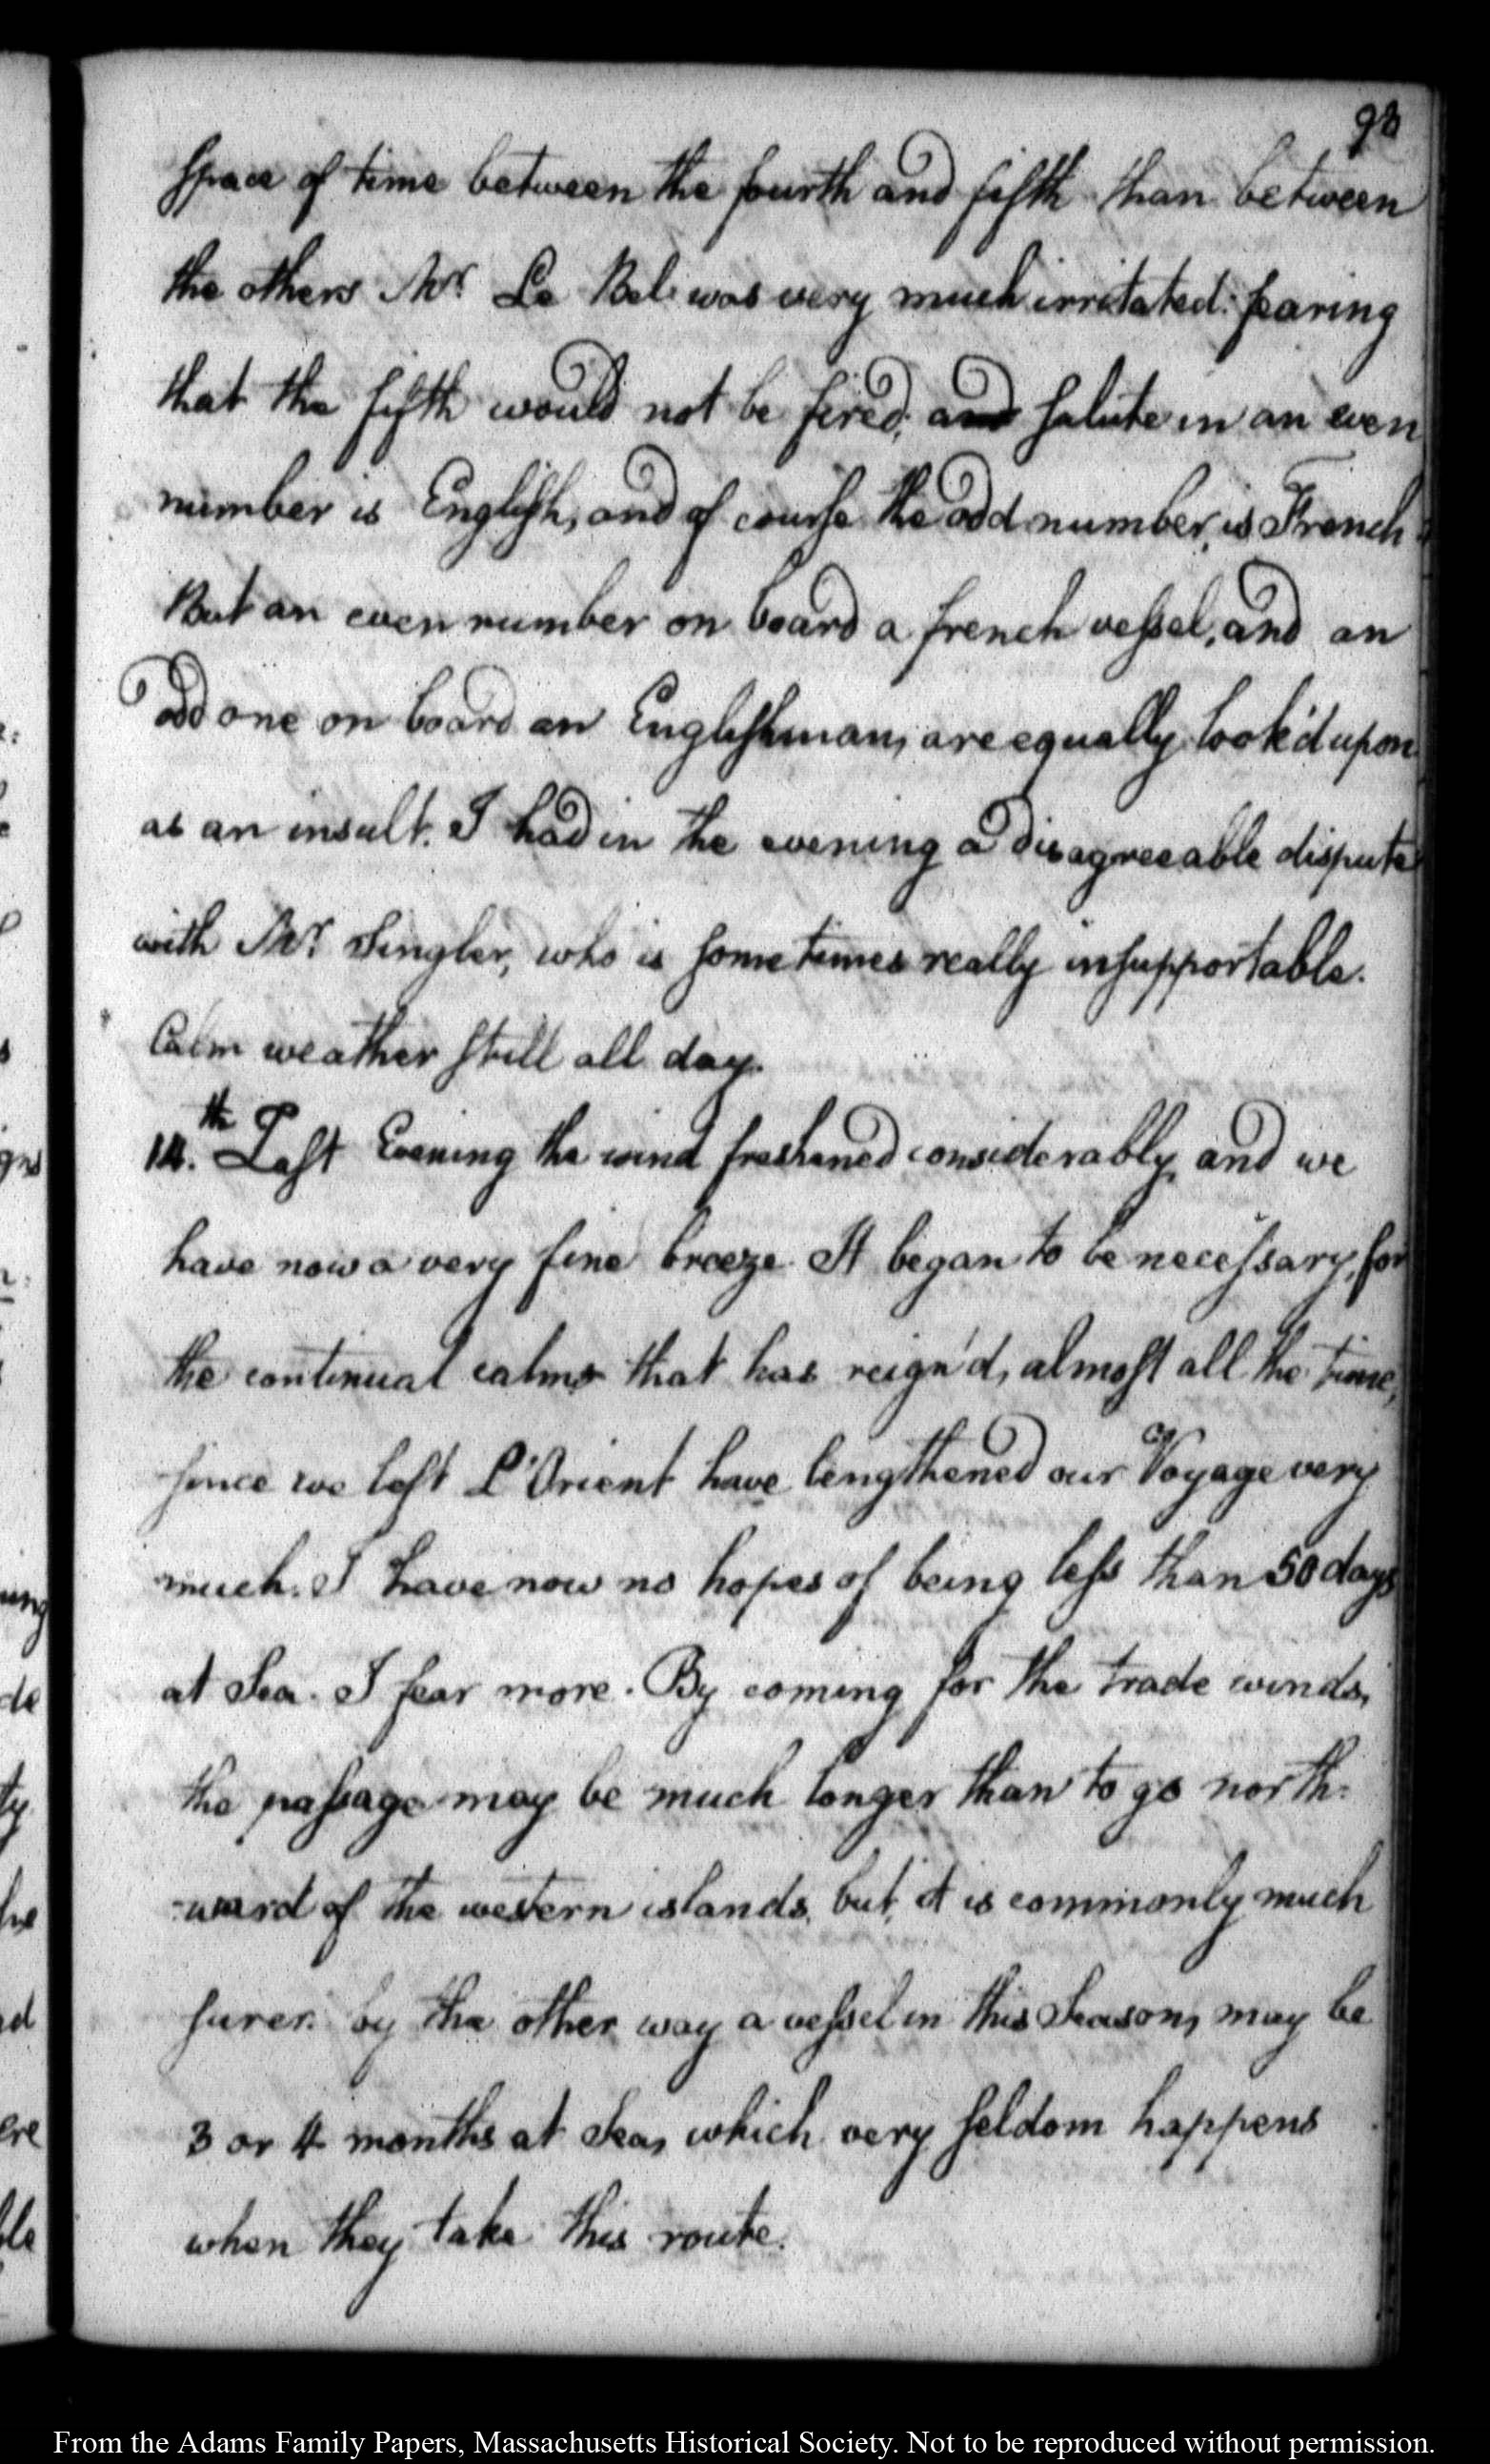 93
space of time between the fourth and fifth than between
the others Mr. Le Bel was very much irritated: fearing
that the fifth would not be fired; and salute in an even
number is English, and of course the odd number, is French
But an even number on board a french vessel, and an
odd one on board an Englishman, are equally look'd upon
as an insult. I had in the evening a disagreeable dispute
with Mr. Singler, who is sometimes really insupportable.
Calm weather still all day.
14.th Last Evening the wind freshened considerably, and we
have now a very fine breeze. It began to be necessary, for
the continual calms that has reign'd, almost all the time,
since we left L'Orient have lengthened our Voyage very
much. I have now no hopes of being less than 50 days
at Sea. I fear more. By coming for the trade winds,
the passage may be much longer than to go north-
-ward of the western islands, but, it is commonly much
surer. by the other way a vessel in this Season, may be
3 or 4 months at Sea, which very seldom happens
when they take this route.
From the Adams Family Papers, Massachusetts Historical Society. Not to be reproduced without permission.